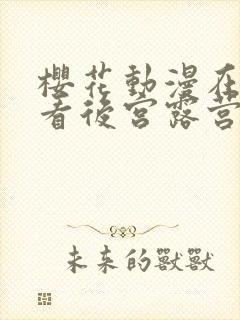 櫻花動漫在
看後宮露營
未来的獸獸